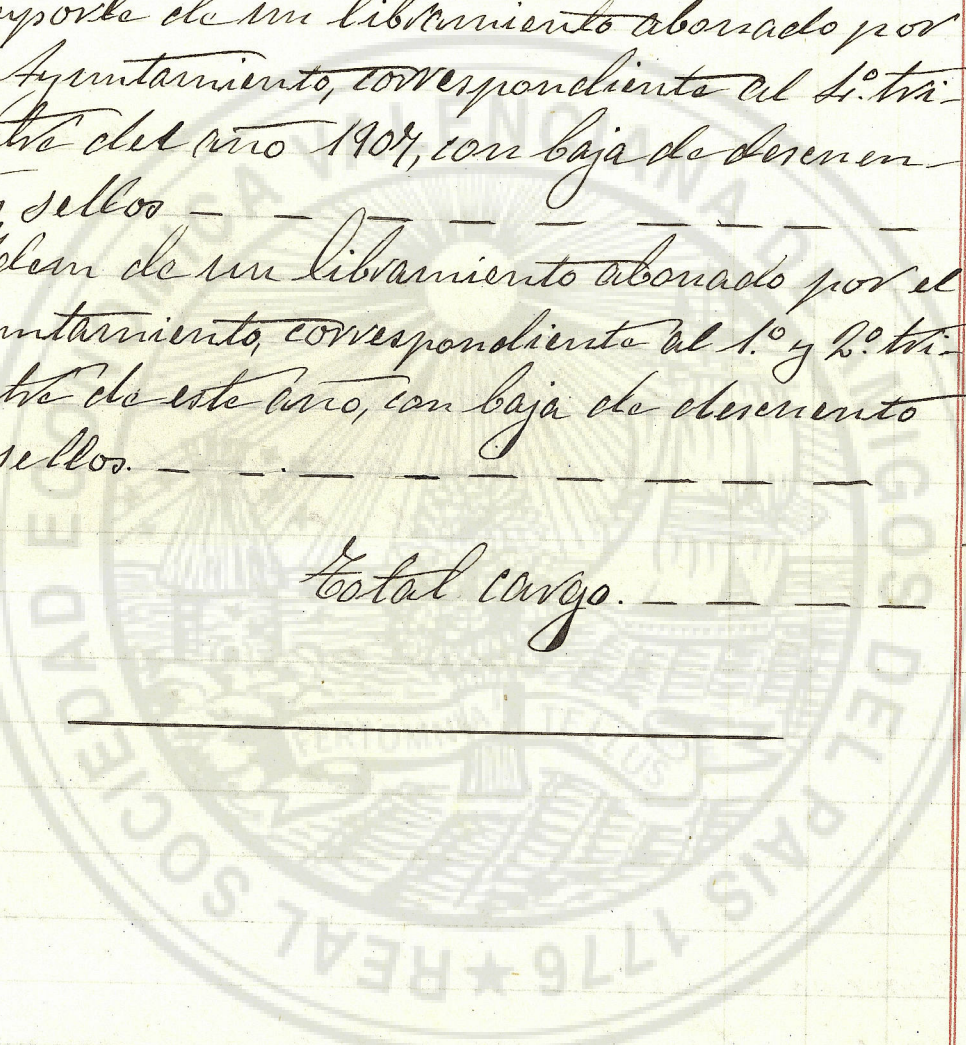 mporte de un libramiento abonado por
Ayuntamiento, correspondiente al 4.º tri-
tre del año 1907, con baja de descuen-
sellos — — — — — — — —
dem de un libramiento abonado por el
untamiento, correspondiente al 1.º y 2.º tri-
tre de este año, con baja de descuento
sellos. — — — — — — — — —
Total cargo. — — — —
REAL SOCIEDAD ECONOMICA VALENCIANA DE AMIGOS DEL PAIS 1776 ★
TELLUS